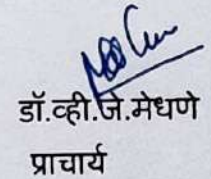 डॉ.व्ही.जे.मेधणे
प्राचार्य